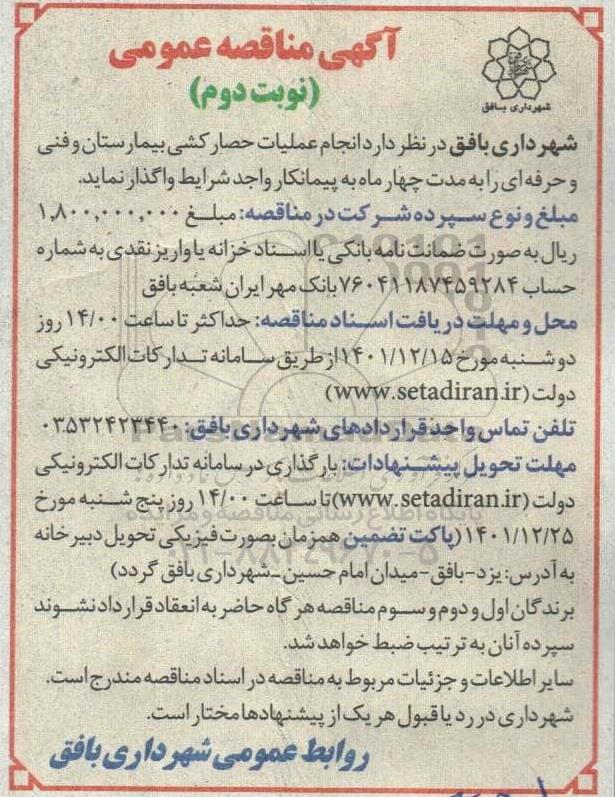 آگهی مناقصه عمومی
(نوبت دوم)
شهرداری بافق
شهرداری بافق در نظر دارد انجام عملیات حصار کشی بیمارستان و فنی
و حرفه ای را به مدت چهار ماه به پیمانکار واجد شرایط واگذار نماید.
مبلغ و نوع سپرده شرکت در مناقصه: مبلغ ۱,۸۰۰,۰۰۰,۰۰۰
ریال به صورت ضمانت نامه بانکی یا اسناد خزانه یا واریز نقدی به شماره
حساب ۷۶۰۴۱۱۸۷۴۵۹۲۸۴ بانک مهر ایران شعبه بافق
محل و مهلت دریافت اسناد مناقصه: حداکثر تا ساعت ۱۴/۰۰ روز
دو شنبه مورخ ۱۴۰۱/۱۲/۱۵ از طریق سامانه تدارکات الکترونیکی
دولت (www.setadiran.ir)
تلفن تماس واحد قراردادهای شهرداری بافق: ۰۳۵۳۲۴۲۳۴۴۰
مهلت تحویل پیشنهادات: بارگذاری در سامانه تدارکات الکترونیکی
دولت (www.setadiran.ir) تا ساعت ۱۴/۰۰ روز پنج شنبه مورخ
۱۴۰۱/۱۲/۲۵ (پاکت تضمین همزمان بصورت فیزیکی تحویل دبیرخانه
به آدرس: یزد-بافق-میدان امام حسین-شهرداری بافق گردد)
برندگان اول و دوم و سوم مناقصه هر گاه حاضر به انعقاد قرارداد نشوند
سپرده آنان به ترتیب ضبط خواهد شد.
سایر اطلاعات و جزئیات مربوط به مناقصه در اسناد مناقصه مندرج است.
شهرداری در رد یا قبول هر یک از پیشنهادها مختار است.
روابط عمومی شهرداری بافق
پایگاه اطلاع رسانی مناقصه و مزایده
۰۲۱-۸۸۳۴۹۶۷۰-۵